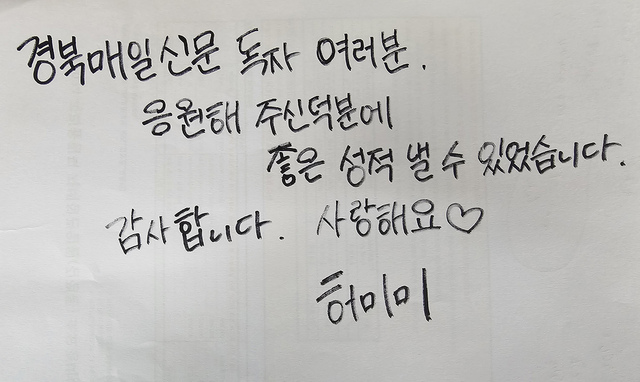 경북매일신문 독자 여러분.
응원해 주신덕분에
좋은 성적 낼 수 있었습니다.
감사합니다. 사랑해요♡
허미미